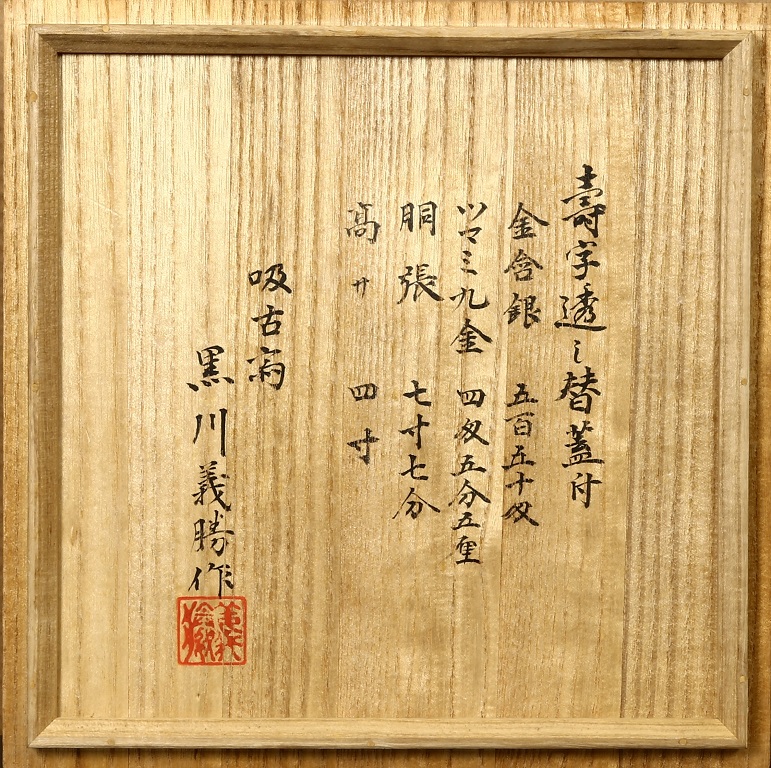 壽字透し替蓋付
金含銀 五百五十匁
ツマミ九金 四匁五分五厘
胴張 七寸七分
高サ 四寸
吸古斎
黒川義勝作